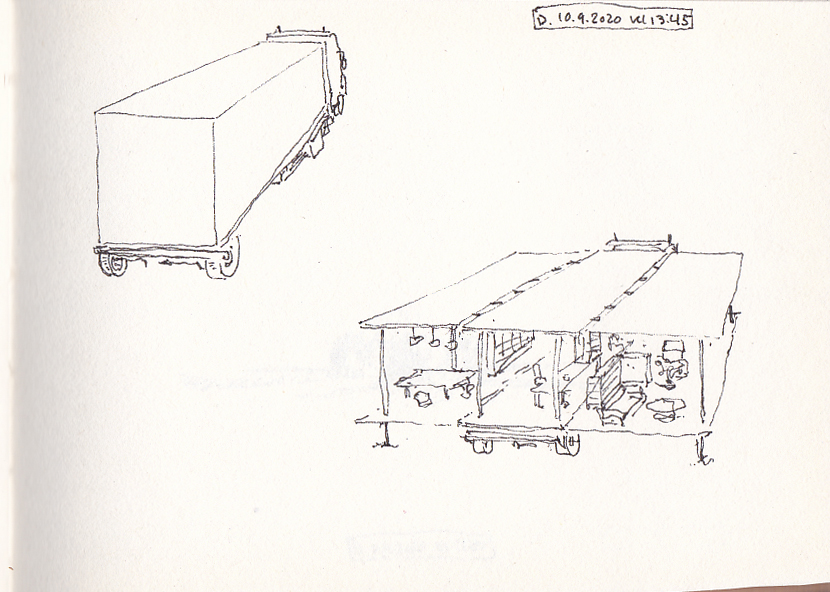 D. 10.9.2020 kl 13:45